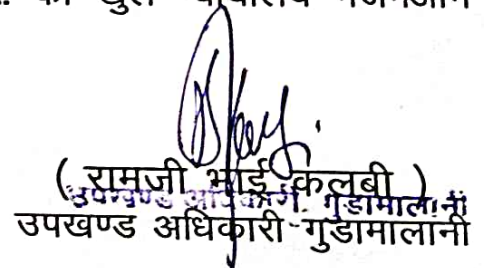 ( रामजी भाई कलबी )
उपखण्ड अधिकारी, गुडामालानी
उपखण्ड अधिकारी-गुडामालानी